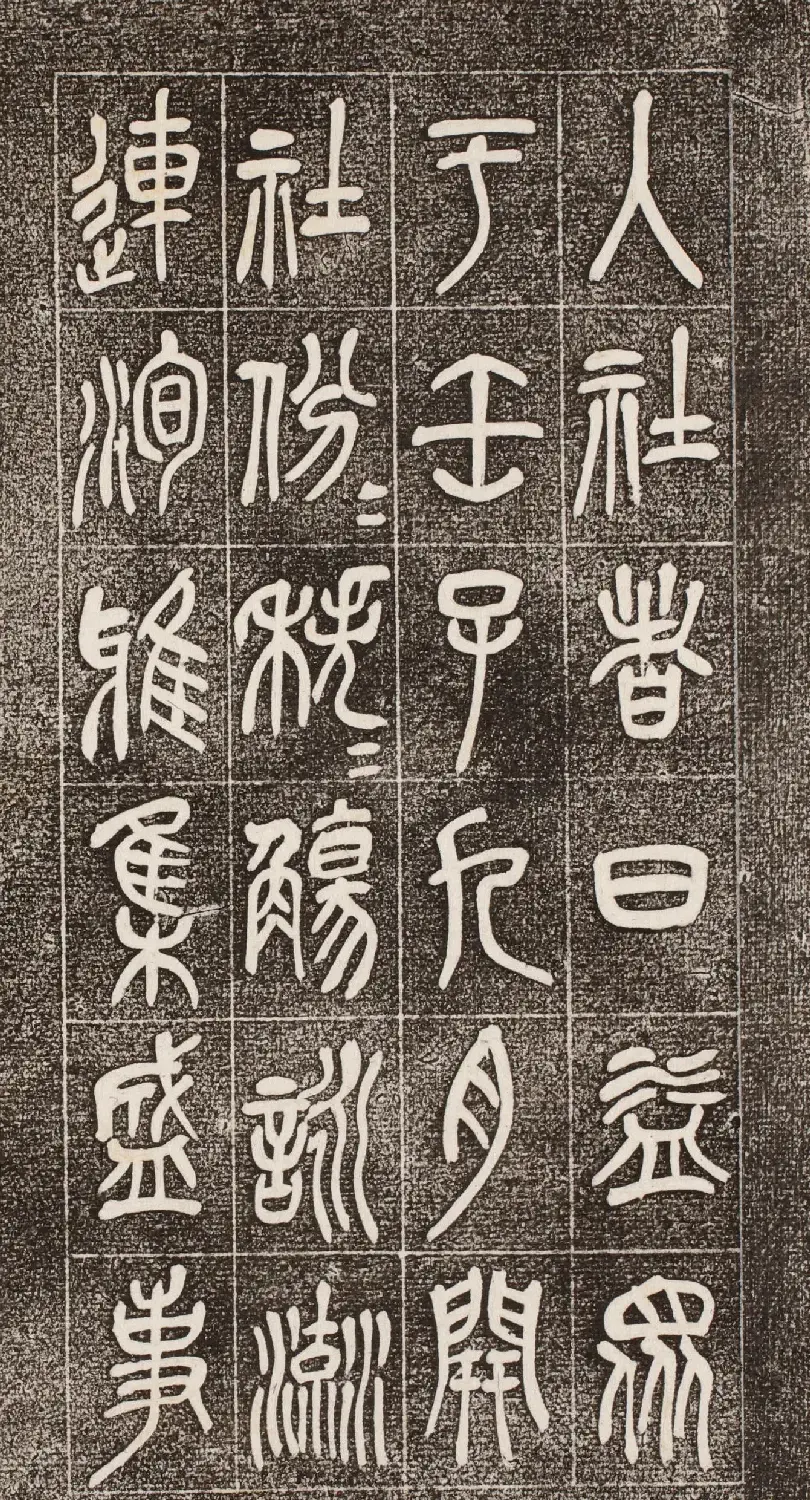 人社者日益眾
于壬子九月開
社份〻秩〻觴詠流
連洵雅集盛事